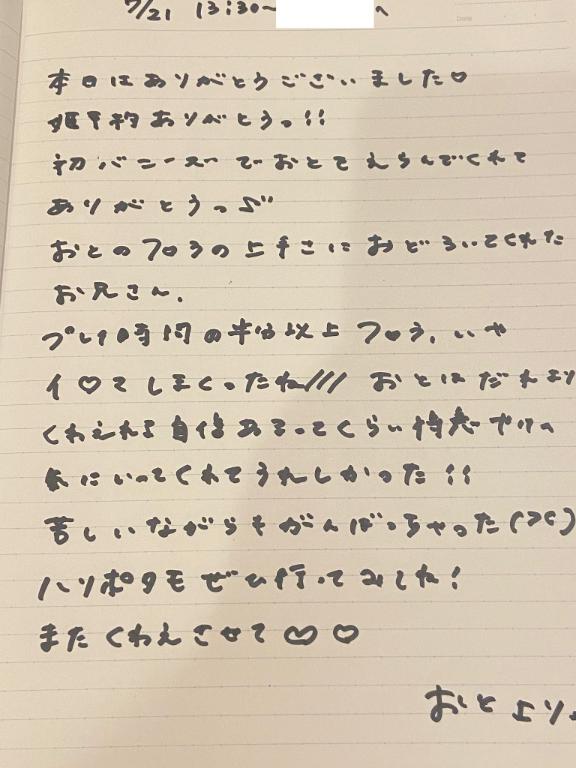 7/21 13:30〜 へ
本日はありがとうございました♡
姫予約ありがとうっ!!
初バニーズでおとをえらんでくれて
ありがとうっ
おとのフ♡ラの上手さにおどろいてくれた
お兄さん.
プレイ時間の半分以上フ♡ラ、いや
イ♡てしまくったね/// おとはだれより
くわえれる自信あるってくらい得意プレイ
気にいってくれてうれしかった!!
苦しいながらもがんばっちゃった(><)
ハリポタもぜひ行ってみしね!
またくわえさせて♡♡
おとより